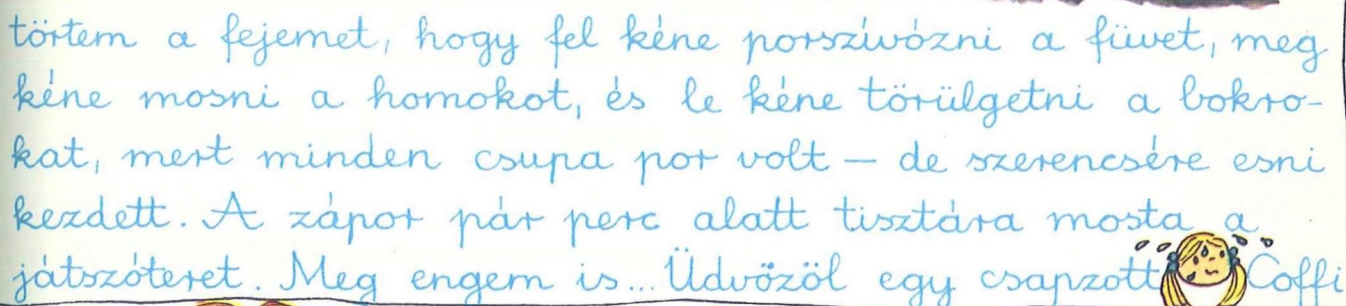 törtem a fejemet, hogy fel kéne porszívózni a füvet, meg
kéne mosni a homokot, és le kéne törülgetni a bokro-
kat, mert minden csupa por volt – de szerencsére esni
kezdett. A zápor pár perc alatt tisztára mosta a
játszóteret. Meg engem is... Üdvözöl egy csapzott Coffi